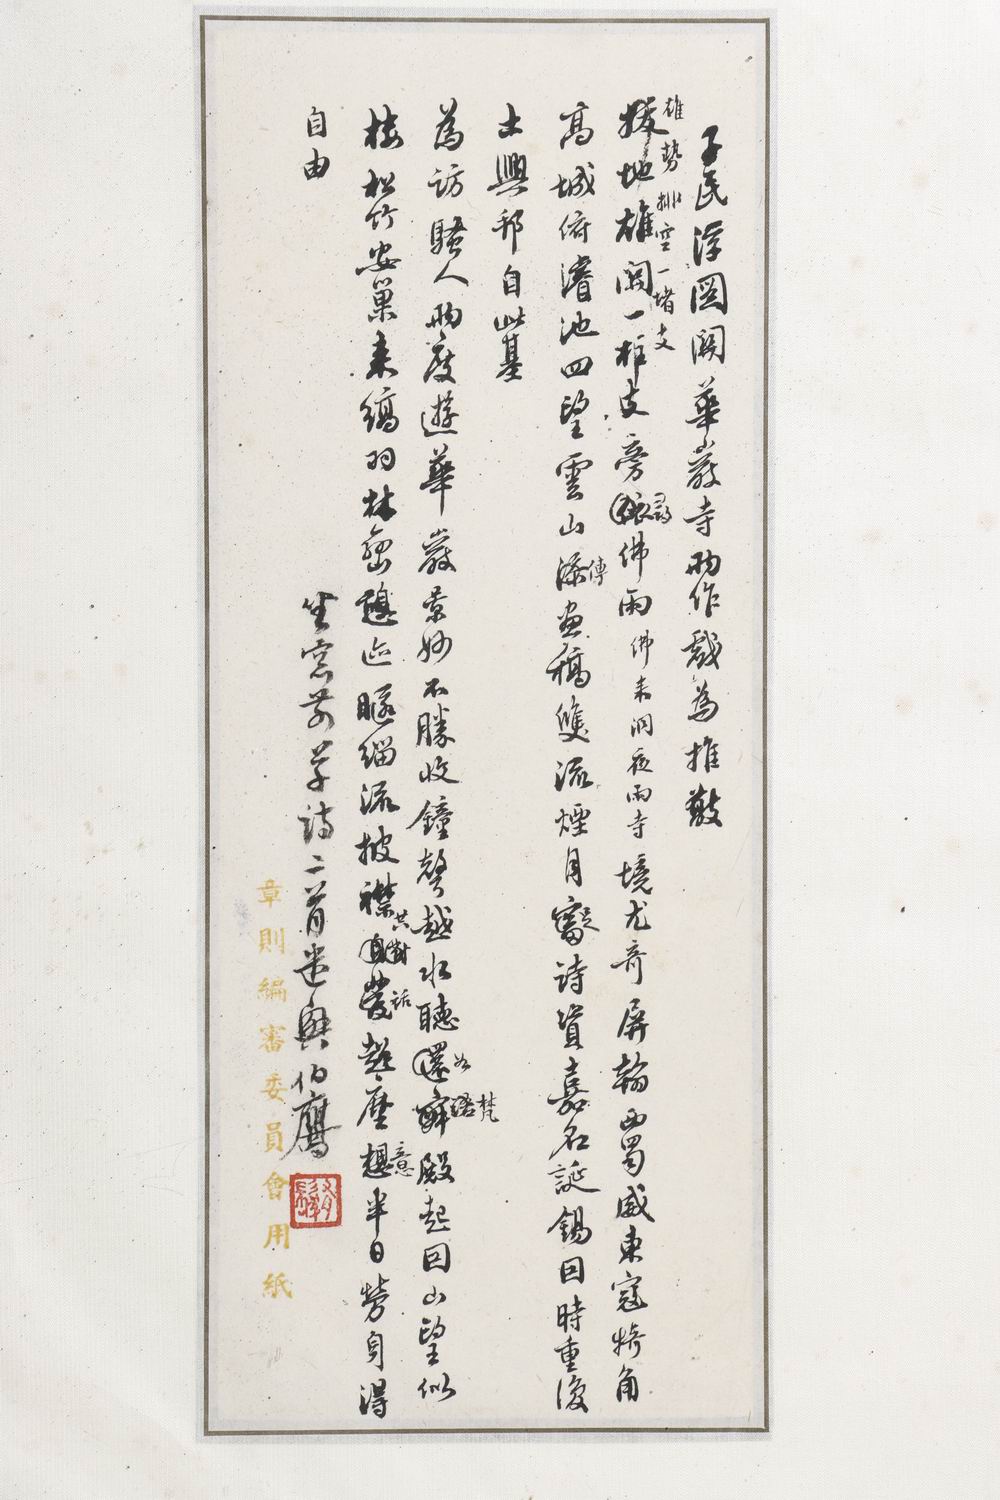 子民浮圖關華嚴寺兩作戲為推敲
雄勢排空一堵支
拔地雄關一柱支旁尋佛雨佛來洞夜雨寺境尤奇屏翰西蜀威東寇犄角
高城俯濬池四望雲山添畫稿雙流煙月富詩資嘉名誕錫回時重復
傳
足
土興邦自此基
為訪騷人兩度遊華嚴景妙不勝收鐘聲越水聽還殿起回山望似
如
梵語
樓松竹安巢來縞羽林巒隱迹暱緇流披襟發塵想半日勞身得
共對
話
意
自由
坐窓前學詩二首送與伯鷹
章則編審委員會用紙